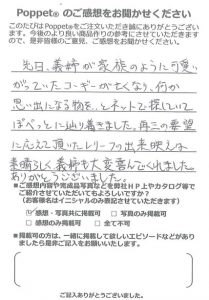 Poppet® のご感想をお聞かせください
このたびはPoppet®をご注文いただき誠にありがとうございます。今後のより良い商品作りの参考にさせていただきますので、是非皆様のご意見、ご感想をお聞かせください。
先日、義姉が家族のように可愛
がっていたコーギーが亡くなり、何か
思い出になる物を、とネットで探していて
ぽぺっとに辿り着きました。再三の要望
に応えて頂いたレリーフの出来映えは
素晴らしく義姉も大変喜んでくれました。
ありがとうございました。
■ご感想内容や完成品写真などを弊社HP上やカタログ等で
ご紹介させていただいてもよろしいですか？
（お客様名はイニシャルのみ表記させていただきます）
☑感想・写真共に掲載可 □写真のみ掲載可
□感想のみ掲載可 □全て不可
■掲載可の方は、一緒に掲載して欲しいエピソードなどがあり
ましたら是非ご記入をお願いいたします。
ご記入ありがとうございました。